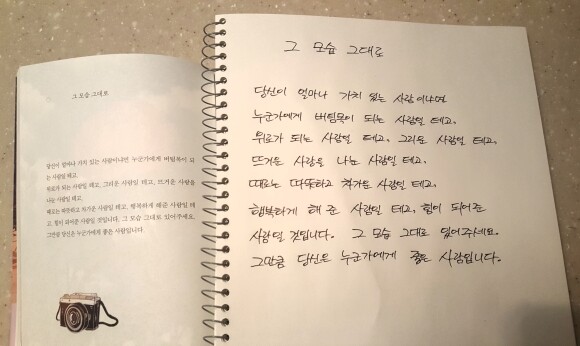 그 모습 그대로
당신이 얼마나 가치 있는 사람이냐면 누군가에게 버팀목이 되
는 사람일 테고
위로가 되는 사람일 테고, 그리운 사람일 테고, 뜨거운 사랑을
나눈 사람일 테고
때로는 따뜻하고 차가운 사람일 테고, 행복하게 해준 사람일 테
고, 힘이 되어준 사람일 것입니다. 그 모습 그대로 있어주세요.
그만큼 당신은 누군가에게 좋은 사람입니다.
그 모습 그대로
당신이 얼마나 가치 있는 사람이냐면
누군가에게 버팀목이 되는 사람일 테고,
위로가 되는 사람일 테고, 그리운 사람일 테고,
뜨거운 사랑을 나눈 사람일 테고,
때로는 따뜻하고 차가운 사람일 테고,
행복하게 해 준 사람일 테고, 힘이 되어준
사람일 것입니다. 그 모습 그대로 있어주세요.
그만큼 당신은 누군가에게 좋은 사람입니다.